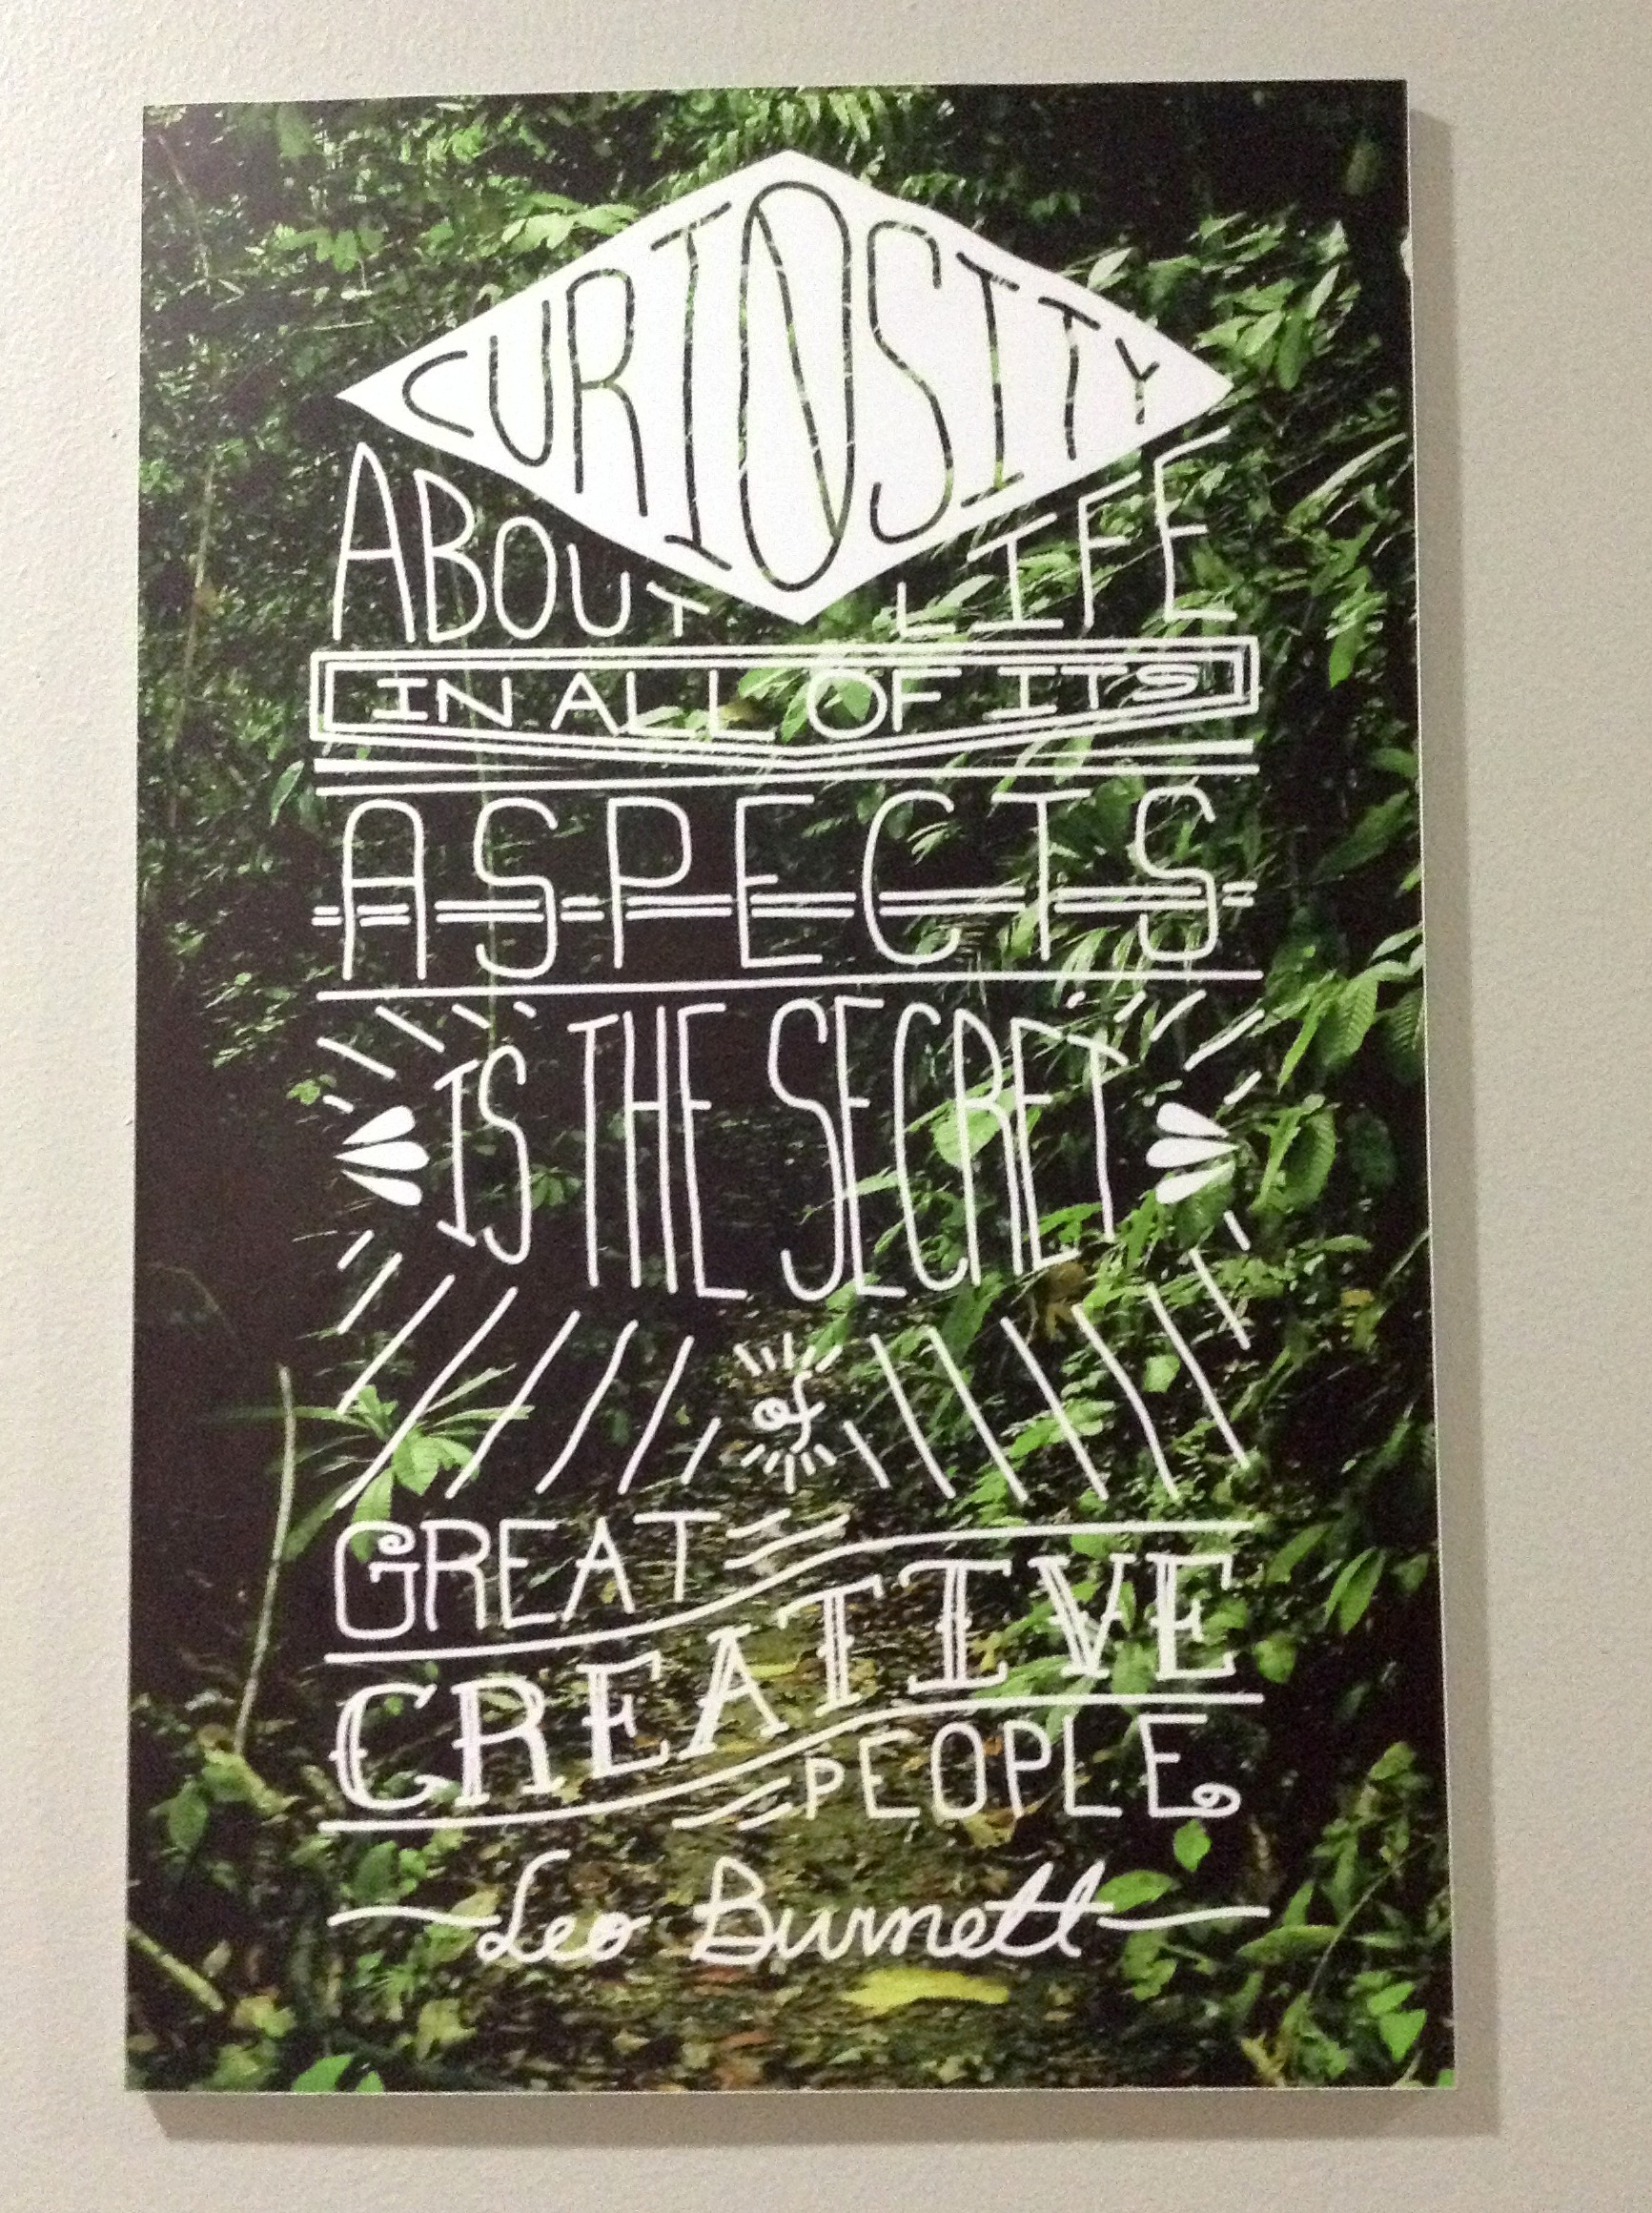 CURIOSITY
ABOUT LIFE
IN ALL OF ITS
ASPECTS
IS THE SECRET
of
GREAT
CREATIVE
PEOPLE
Leo Burnett